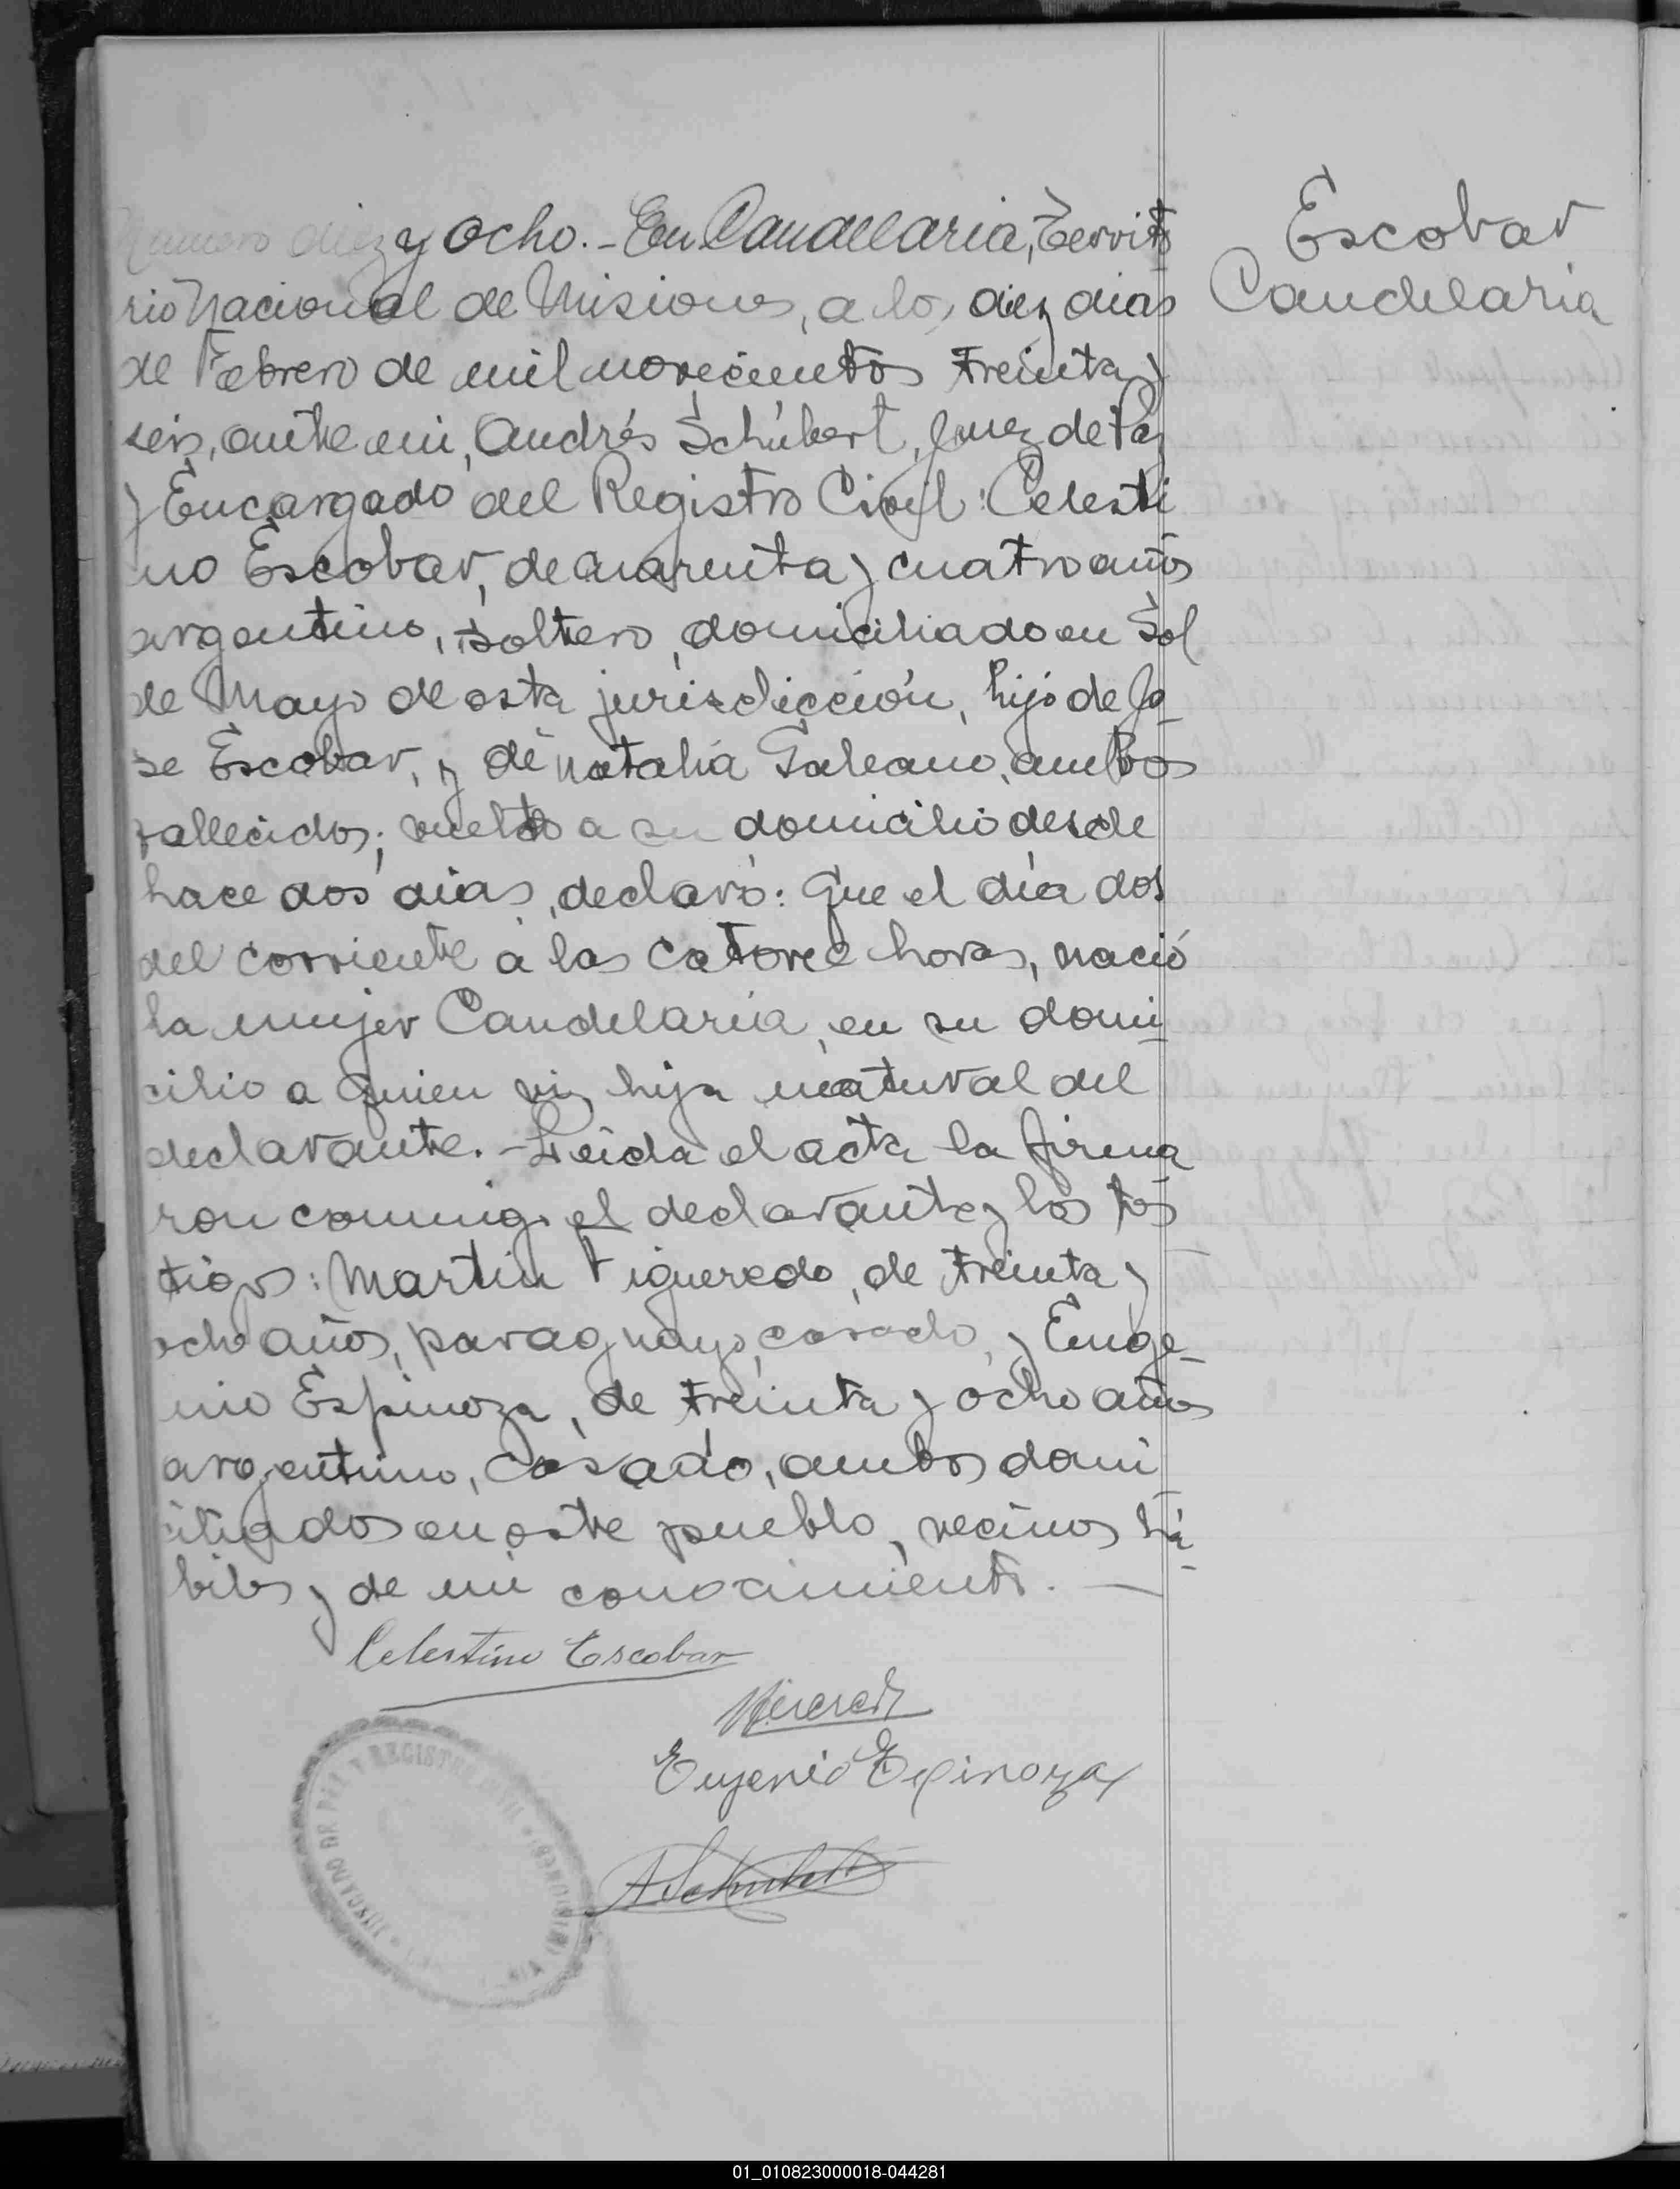 Escobar
Candelaria
Numero diez y ocho. - En Candelaria, Territo
rio Nacional de Misiones, a los diez dias
de Febrero de mil novecientos treinta y
seis, ante mi, Andrés Schubert, Juez de Paz
y Encargado del Registro Civil: Celesti
no Escobar, de cuarenta y cuatro años
argentino, soltero, domiciliado en Sol
de Mayo de esta jurisdicción, hijo de Jo-
se Escobar, y de Natalia Galeano, ambos
fallecidos; vuelto a su domicilio desde
hace dos dias, declaró: Que el día dos
del corriente a las catorce horas, nació
la mujer Candelaria, en su domi-
cilio a quien vi, hija natural del
declarante. - Leida el acta la firma
ron conmigo el declarante y los tes
tigos: Martin Figueredo, de treinta y
ocho años, paraguayo, casado, y Euge-
nio Espinoza, de treinta y ocho años
argentino, casado, ambos domi
ciliados en este pueblo, vecinos há-
biles y de mi conocimiento. —
Celestino Escobar
Eugenio Espinoza
A Schubert
JUZGADO DE PAZ Y REGISTRO CIVIL
01_010823000018-044281